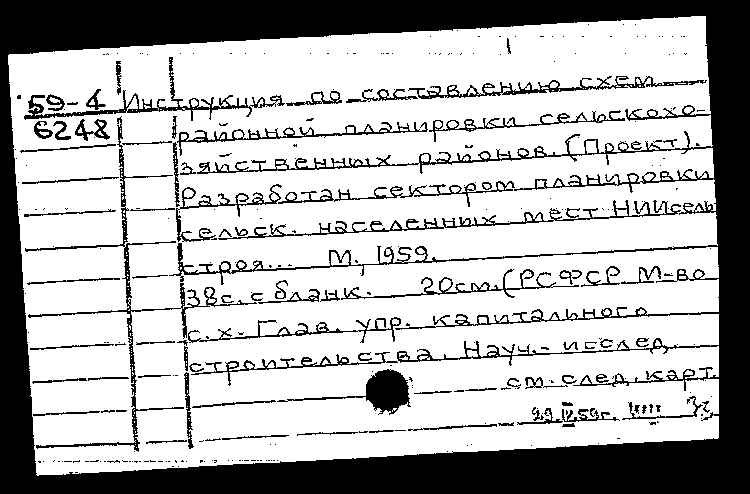 59-4 Инструкция по составлению схем
6248 районной планировки сельскохо-
зяйственных районов. (Проект).
Разработан сектором планировки
сельск. населенных мест НИИсель
строя... М., 1959.
38с. с бланк. 20см. (РСФСР М-во
с.х. Глав. упр. капитального
строительства. Науч.-исслед.
см. след. карт.
29.IV.59г.